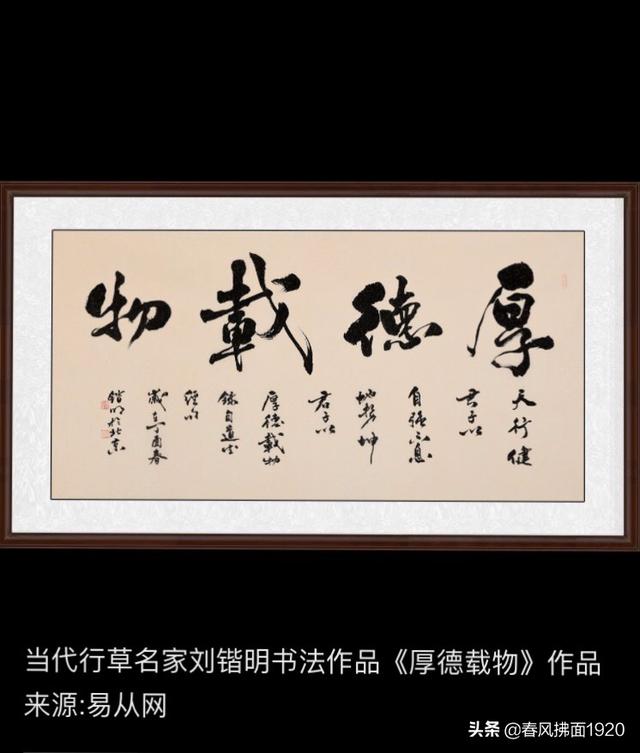 厚德載物
天行健
君子以
自强不息
地势坤
君子以
厚德載物
歲在丁酉春
鍇明於北京
当代行草名家刘锴明书法作品《厚德载物》作品
来源:易从网
头条 @春风拂面1920